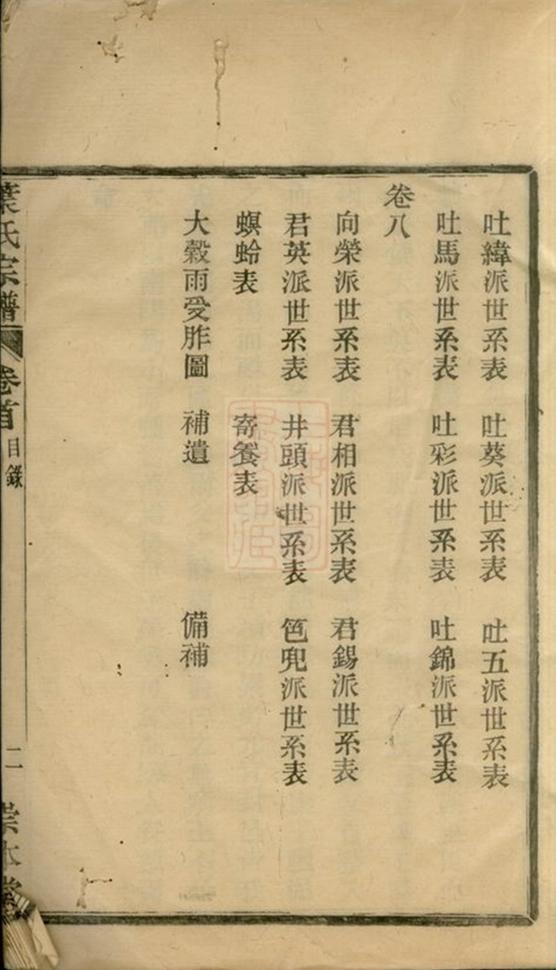 吐緯派世系表 吐葵派世系表 吐五派世系表
吐馬派世系表 吐彩派世系表 吐錦派世系表
卷八
向榮派世系表 君相派世系表 君錫派世系表
君英派世系表 井頭派世系表 笆兜派世系表
螟蛉表 寄養表
大穀雨受胙圖 補遺 備補
葉氏宗譜 卷首 目錄 二 崇本堂